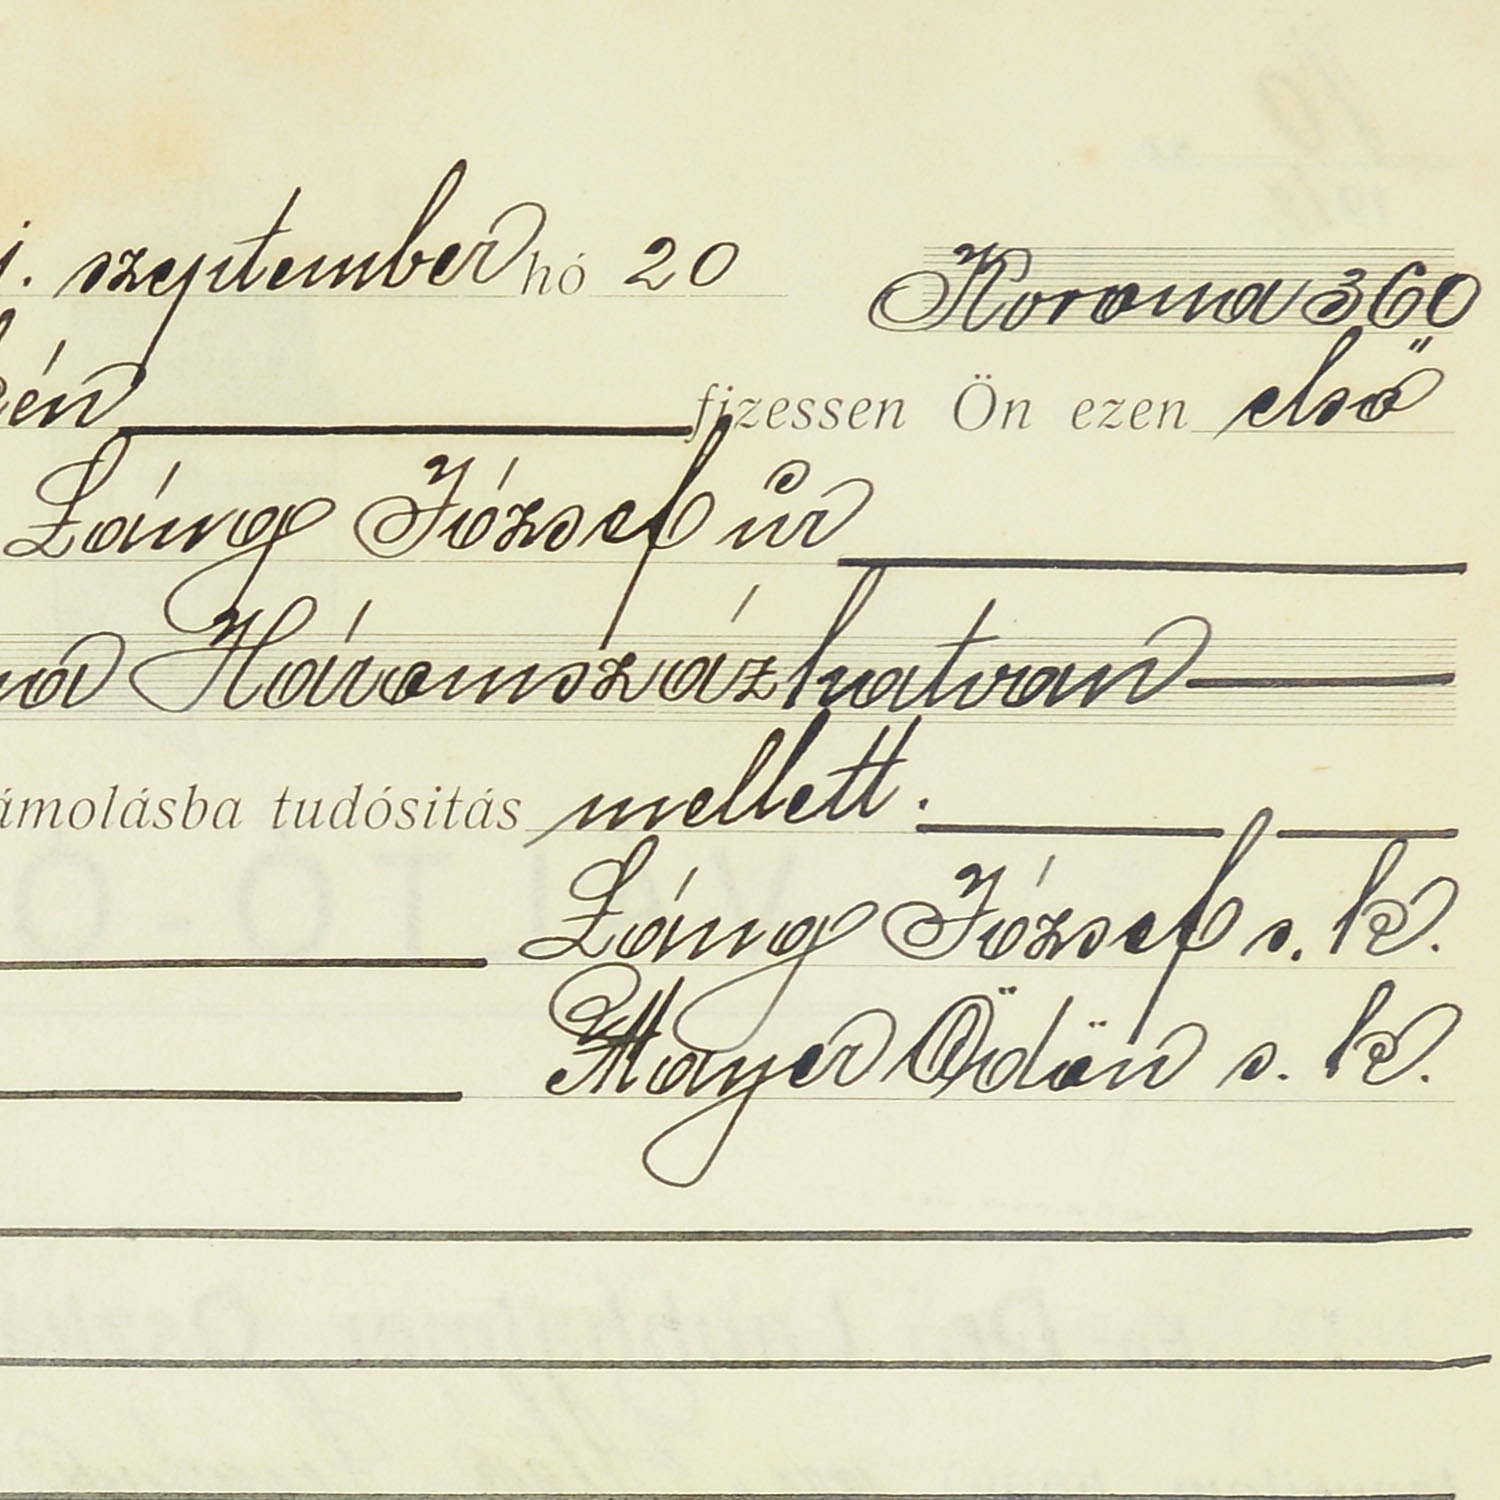 szeptember hó 20 Korona 360
fizessen Ön ezen első
Láng József úr
Háromszázhatvan
tudósitás mellett.
Láng József s. k.
Mayer Ödön s. k.